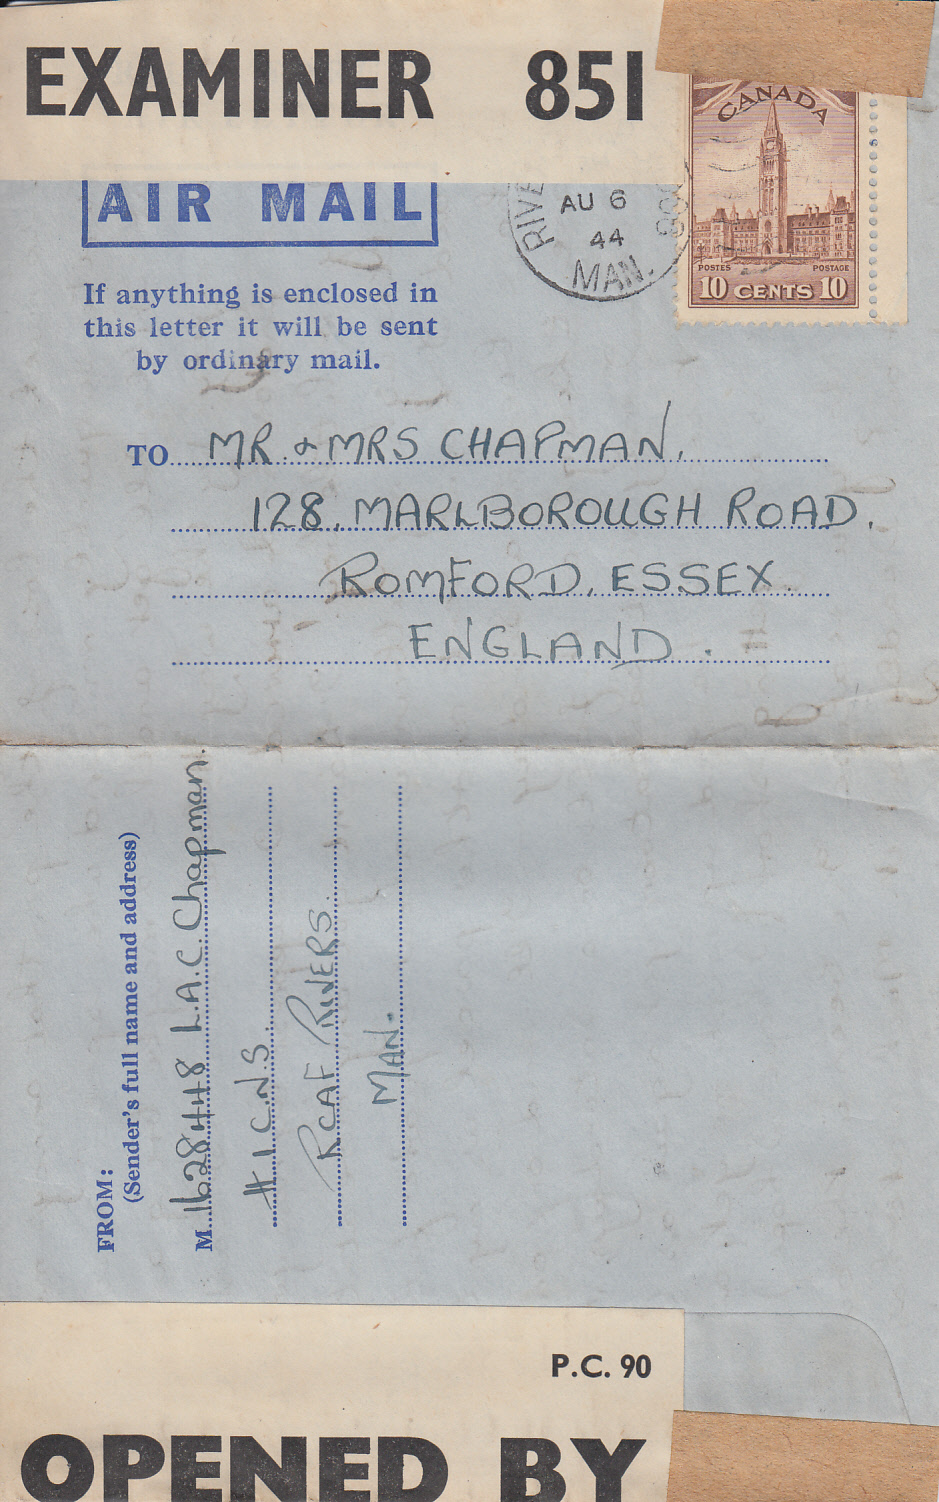 EXAMINER 851
CANADA
POSTES POSTAGE
10 CENTS 10
AU 6
44
MAN.
AIR MAIL
If anything is enclosed in
this letter it will be sent
by ordinary mail.
TO MR & MRS CHAPMAN,
128, MARLBOROUGH ROAD,
ROMFORD, ESSEX.
ENGLAND.
FROM:
(Sender's full name and address)
M 1628448 L.A.C. Chapman
#1 C.N.S.
RCAF RIVERS.
MAN.
P.C. 90
OPENED BY